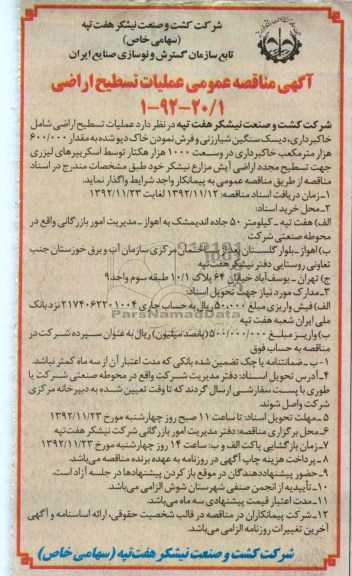 شرکت کشت و صنعت نیشکر هفت تپه
(سهامی خاص)
تابع سازمان گسترش و نوسازی صنایع ایران
آگهی مناقصه عمومی عملیات تسطیح اراضی
۱-۹۲-۲۰/۱
شرکت کشت و صنعت نیشکر هفت تپه در نظر دارد عملیات تسطیح اراضی شامل
خاکبرداری، دیسک سنگین شیارزنی و فرش نمودن خاک دپو شده به مقدار ۶۰۰/۰۰۰
هزار مترمکعب خاکبرداری در وسعت ۱۰۰۰ هزار هکتار توسط اسکریپرهای لیزری
جهت تسطیح مجدد اراضی آیش مزارع نیشکر خود طبق مشخصات مندرج در اسناد
مناقصه از طریق مناقصه عمومی به پیمانکار واجد شرایط واگذار نماید.
۱-زمان دریافت اسناد مناقصه: ۱۳۹۲/۱۱/۱۲ لغایت ۱۳۹۲/۱۱/۲۳
۲-محل خرید اسناد:
الف) هفت تپه - کیلومتر ۵۰ جاده اندیمشک به اهواز - مدیریت امور بازرگانی واقع در
محوطه صنعتی شرکت
ب) اهواز - بلوار گلستان ساختمان مرکزی سازمان آب و برق خوزستان جنب
تعاونی روستایی دفتر نیشکر هفت تپه
ج) تهران - یوسف‌آباد خیابان ۶۴ پلاک ۱۰/۱ طبقه سوم واحد ۹
۳-مدارک مورد نیاز جهت تحویل اسناد:
الف) فیش واریزی مبلغ ۵۰۰/۰۰۰ ریال به حساب جاری ۲۱۷۴۰۶۲۲۰۱۰۰۴ نزد بانک
ملی ایران شعبه هفت تپه
ب) واریز مبلغ ۵۰۰/۰۰۰/۰۰۰ (پانصد میلیون) ریال به عنوان سپرده شرکت در
مناقصه به حساب فوق
۱-ب - ضمانتنامه یا چک تضمین شده بانکی که مدت اعتبار آن از سه ماه کمتر نباشد.
۴-آدرس تحویل اسناد: دفتر مدیریت شرکت واقع در محوطه صنعتی شرکت یا
طوری با پست سفارشی ارسال گردند که تا وقت تعیین شده به دبیرخانه مرکزی
شرکت واصل شوند.
۵-مهلت تحویل اسناد: تا ساعت ۱۱ صبح روز چهارشنبه مورخ ۱۳۹۲/۱۱/۲۳
۶-محل برگزاری مناقصه: دفتر مدیریت امور بازرگانی شرکت نیشکر هفت تپه
۷-زمان بازگشایی پاکت الف و ب: ساعت ۱۴ روز چهارشنبه مورخ ۱۳۹۲/۱۱/۲۳
۸-پرداخت هزینه چاپ آگهی در روزنامه به عهده برنده مناقصه می‌باشد.
۹-حضور پیشنهاددهندگان در موقع باز کردن پیشنهادها در جلسه آزاد است.
۱۰-تأییدیه از انجمن صنفی شهرستان شوش الزامی می‌باشد.
۱۱-مدت اعتبار قیمت پیشنهادی سه ماه می‌باشد.
۱۲-شرکت پیمانکاران در مناقصه در قالب شخصیت حقوقی، ارائه اساسنامه و آگهی
آخرین تغییرات روزنامه الزامی می‌باشد.
شرکت کشت و صنعت نیشکر هفت تپه (سهامی خاص)